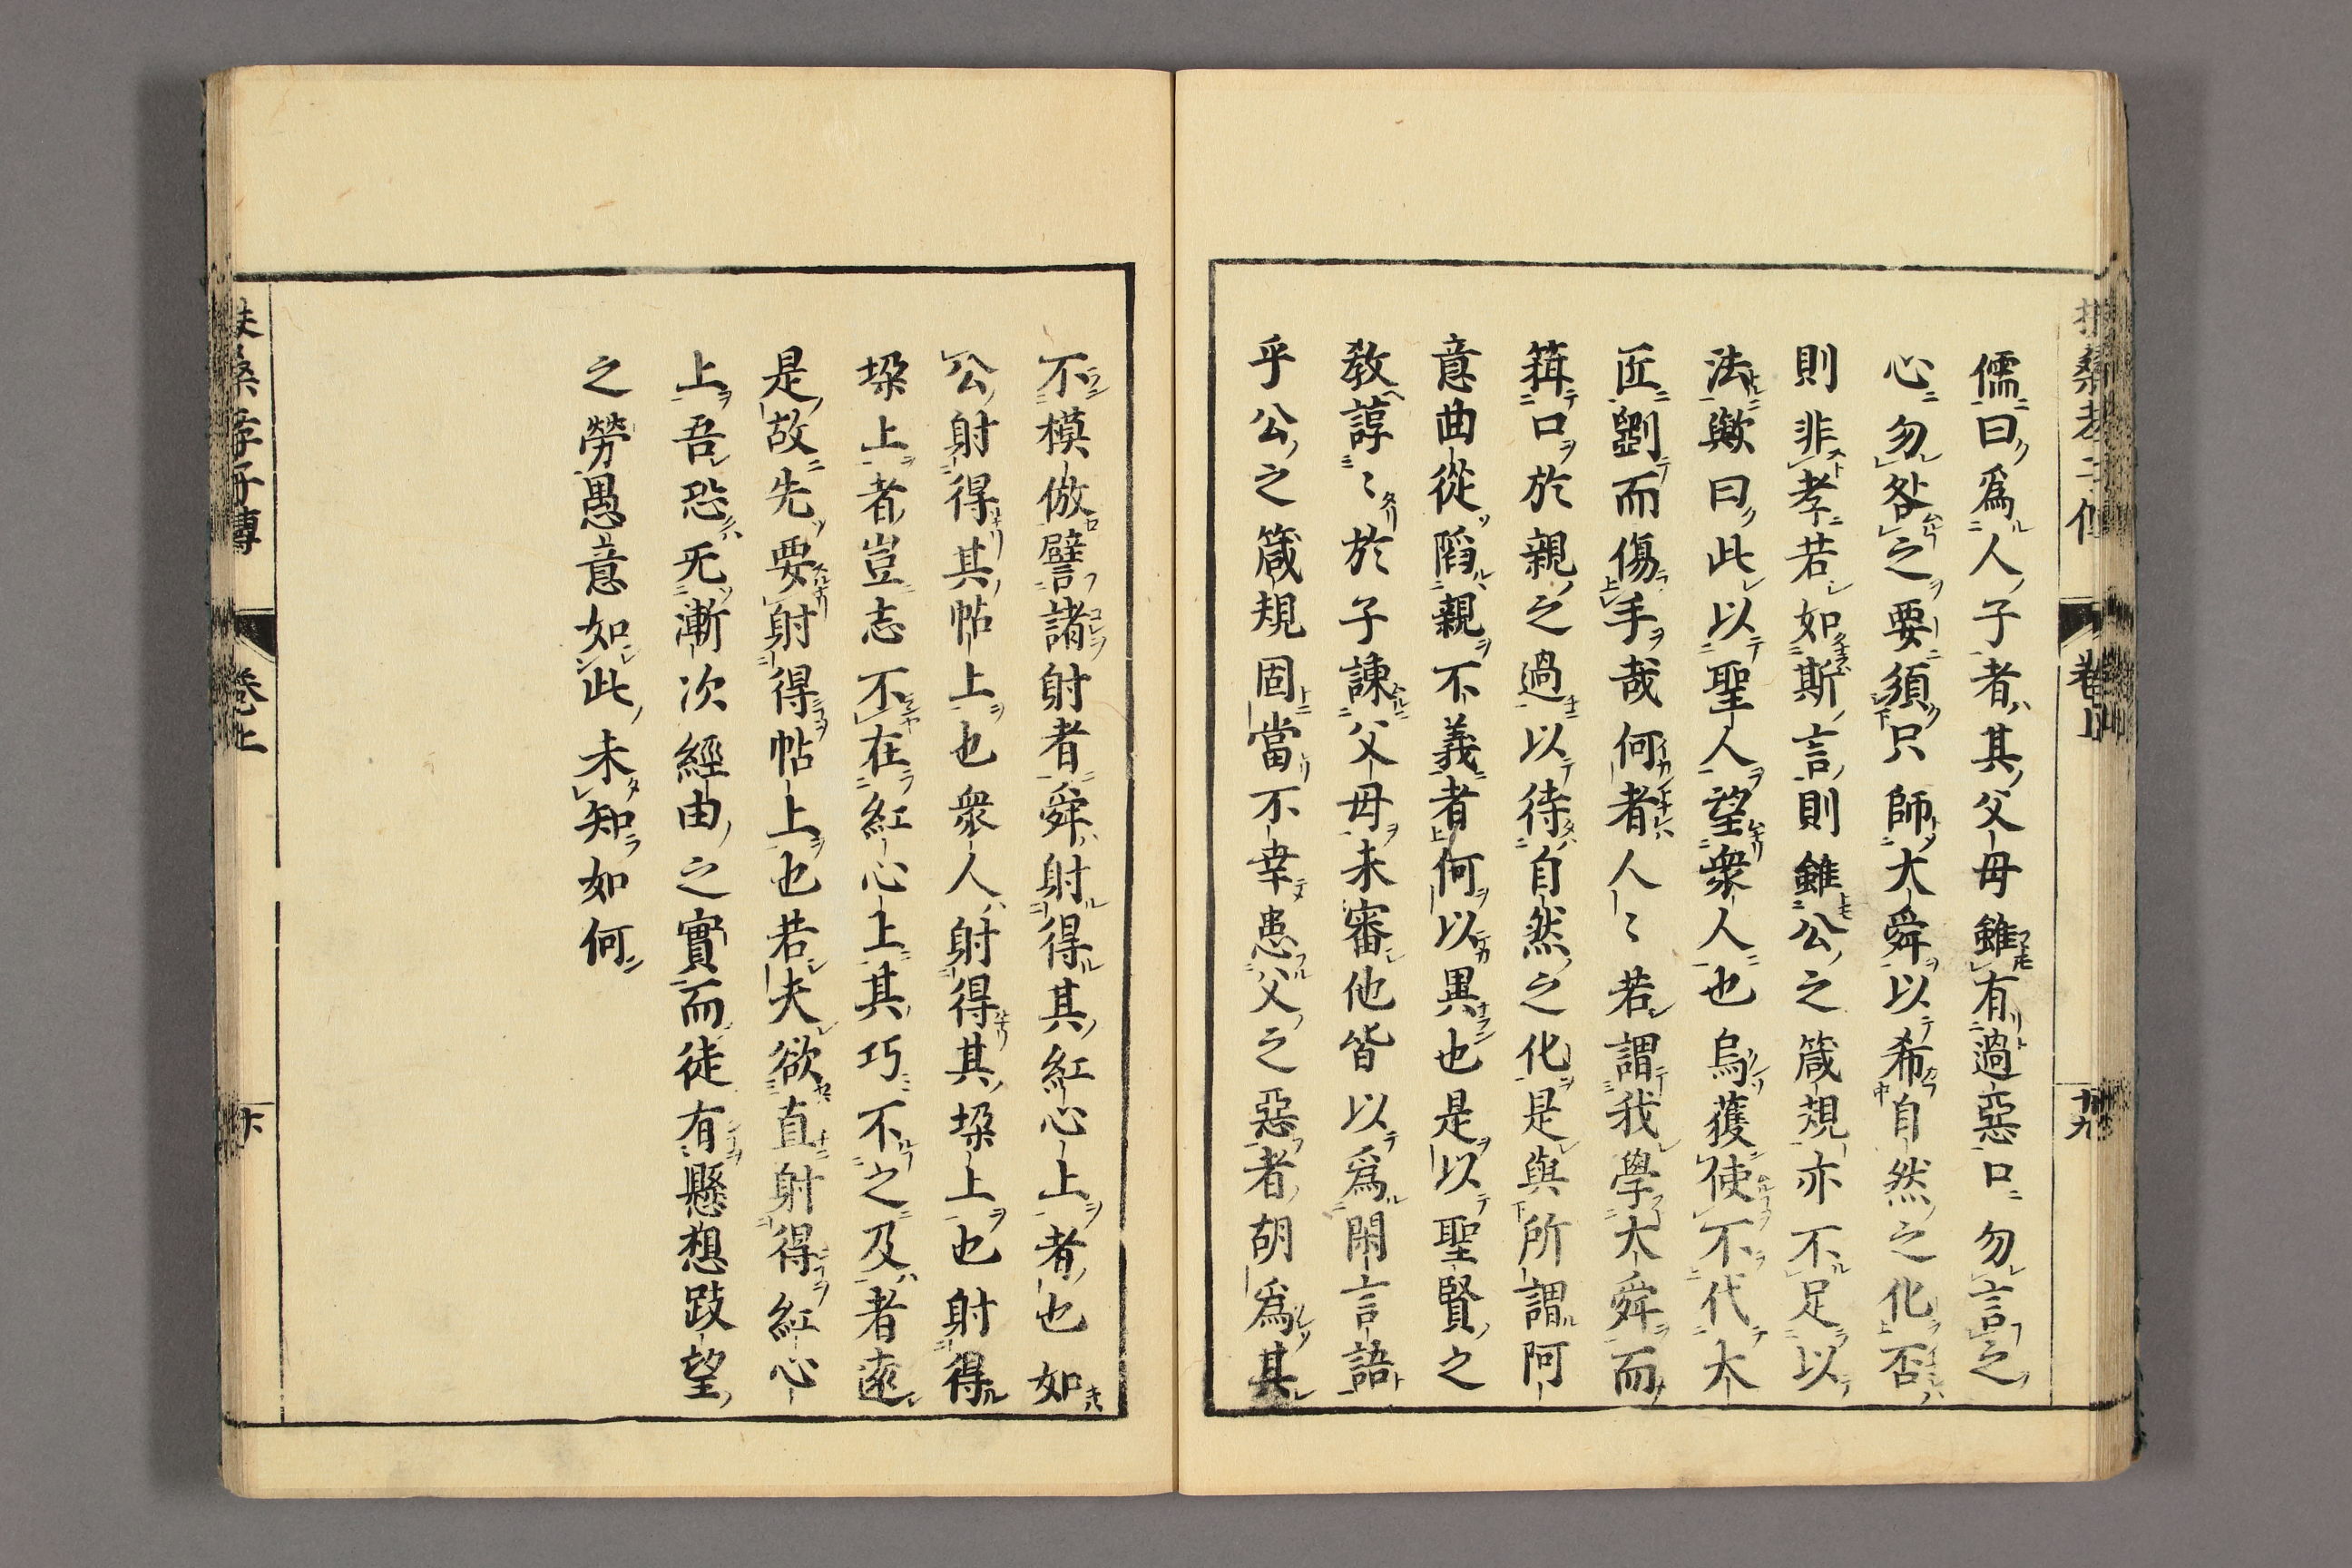 儒曰爲人子者其父母雖有過惡口勿言之
心勿咎之要須只師大舜以希自然之化否
則非孝若如斯言則雖公之箴規亦不足以
法歟曰此以聖人望衆人也烏獲使不代大
匠劉而傷手哉何者人〻若謂我學大舜而
箝口於親之過以待自然之化是與所謂阿
意曲從陷親不義者何以異也是以聖賢之
教諄〻於子諫父母未審他皆以爲閑言語
乎公之箴規固當不幸患父之惡者胡爲其
不模倣譬諸射者舜射得其紅心上者也如
公射得其帖上也衆人射得其垜上也射得
垜上者豈志不在紅心上其巧不之及者遠
是故先要射得帖上也若夫欲直射得紅心
上吾恐无漸次經由之實而徒有懸想跂望
之勞愚意如此未知如何
扶桑孝子傳
卷上
十九
扶桑孝子傳
卷上